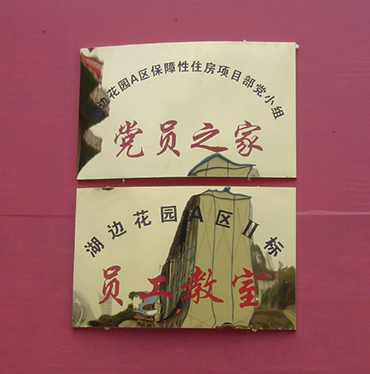 边花园A区保障性住房项目部党小组
党员之家
湖边花园A区II标
员工教室